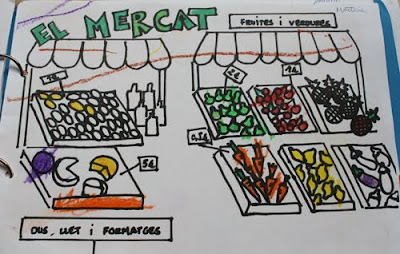 EL MERCAT
FRUITES i VERDURES
1€
2€
1€
0,5€
5€
OUS, LLET i FORMATGES